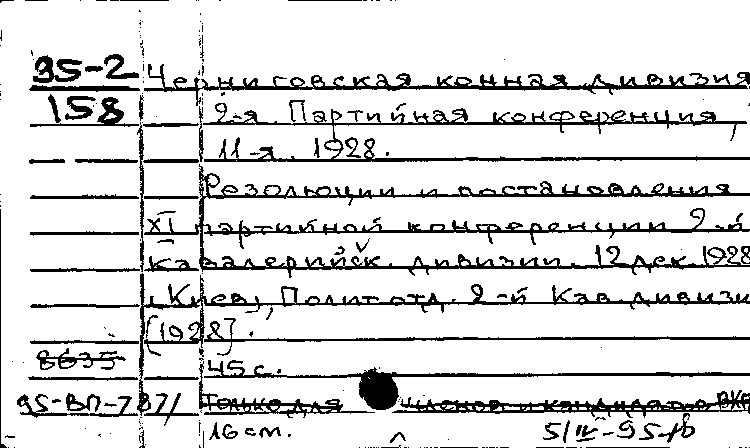 95-2 Черниговская конная дивизия
158 2-я. Партийная конференция,
11-я. 1928.
Резолюции и постановления
XI партийной конференции 2-й
кавалерийск. дивизии. 12 дек. 1928
(Киев), Политотд. 2-й Кав. дивизи
[1928].
8635 45 с.
95-ВП-787/ Только для членов и кандидатов ВКП
16 см. 5/IV-95-р